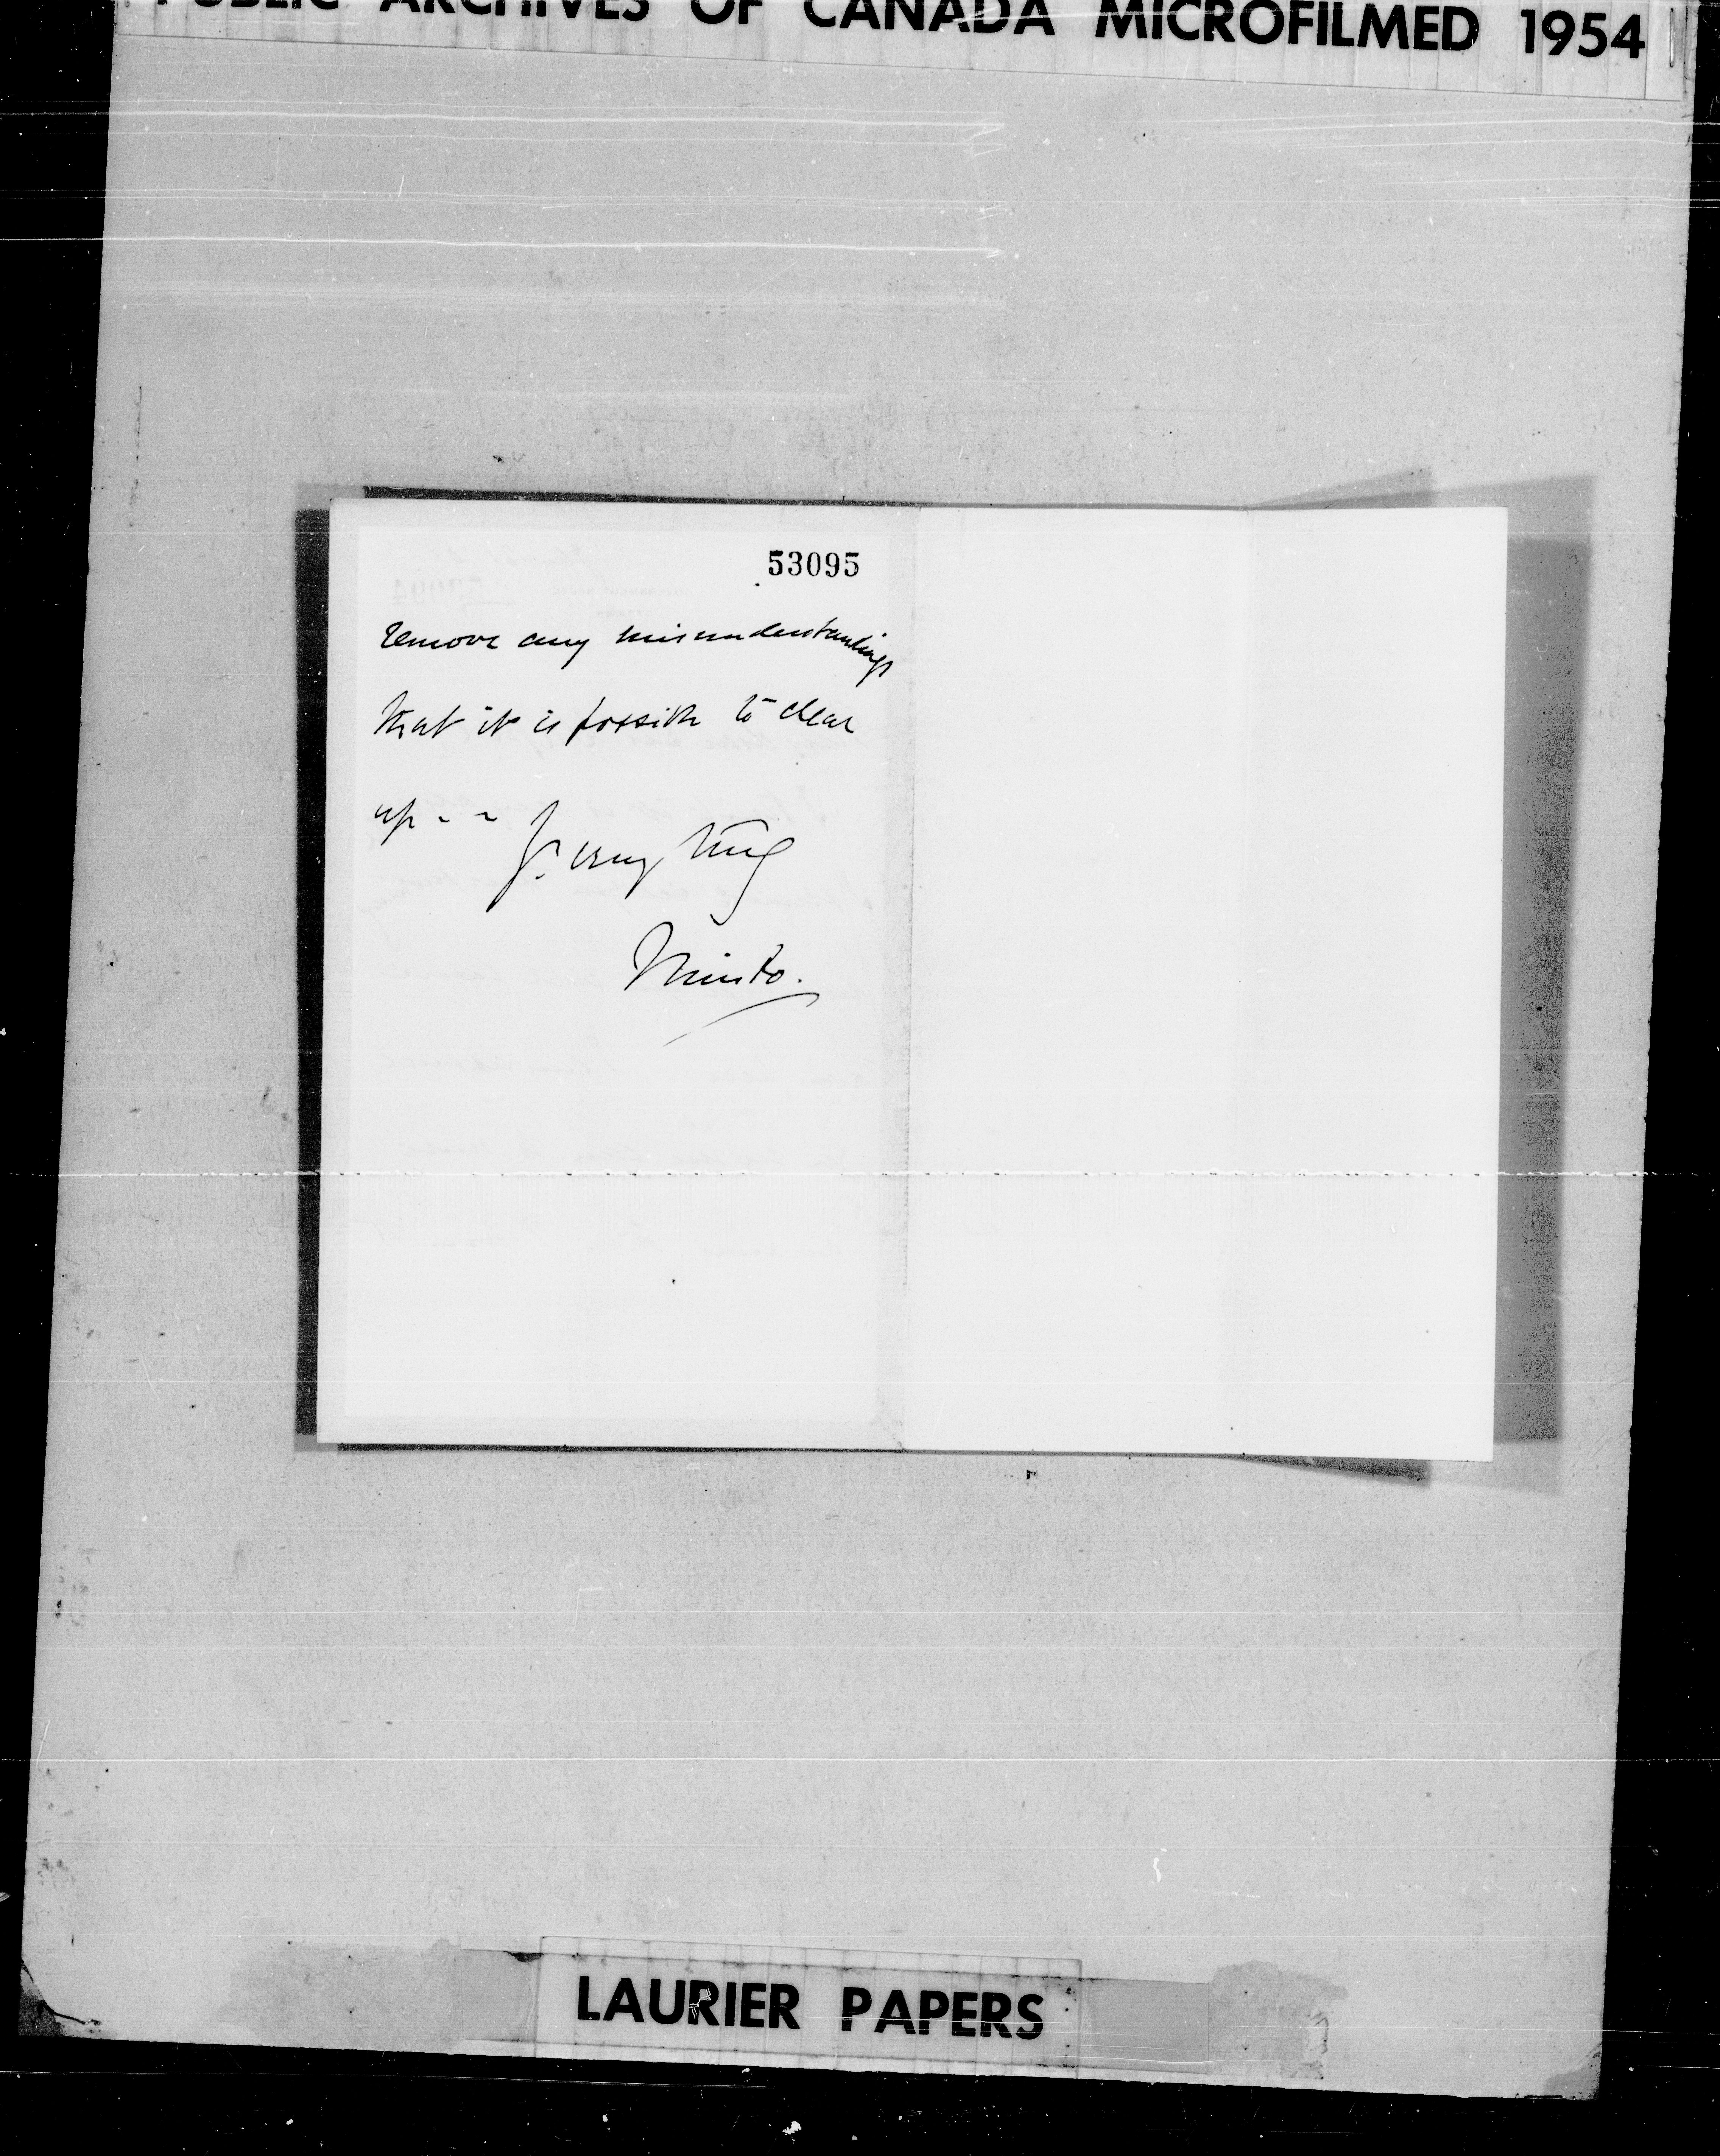 PUBLIC ARCHIVES OF CANADA MICROFILMED 1954
53095
remove any misunderstandings
that it is possible to clear
up - -
Yr. very truly
Minto.
LAURIER PAPERS